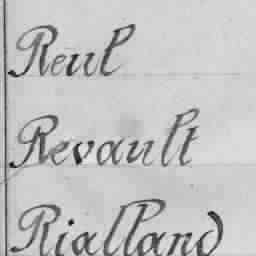 Reul
Revault
Rialland